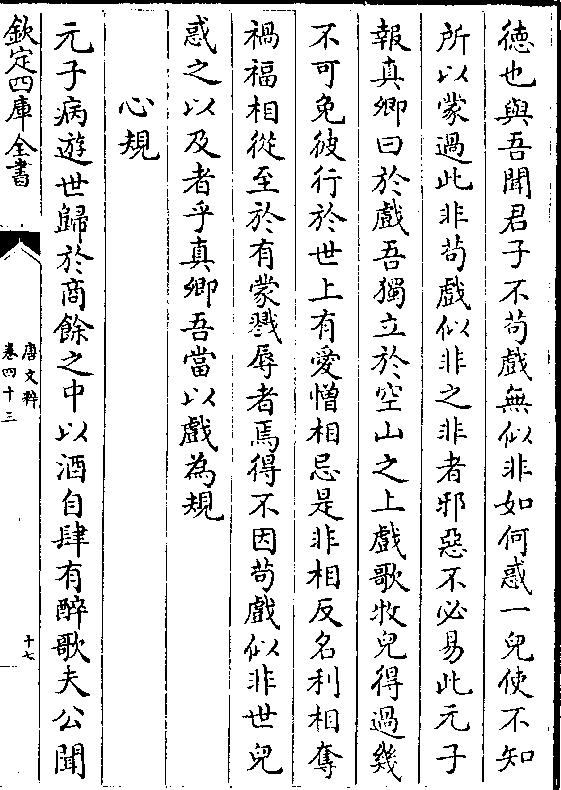 德也與吾聞君子不苟戲無似非如何惑一兒使不知
所以蒙過此非苟戲似非之非者邪惡不必易此元子
報真卿曰於戲吾獨立於空山之上戲歌牧兒得過幾
不可免彼行於世上有愛憎相忌是非相反名利相奪
禍福相從至於有蒙戮辱者焉得不因苟戲似非世兒
惑之以及者乎真卿吾當以戲為規
心規
元子病遊世歸於商餘之中以酒自肆有醉歌夫公聞
欽定四庫全書
唐文粹
卷四十三
十七